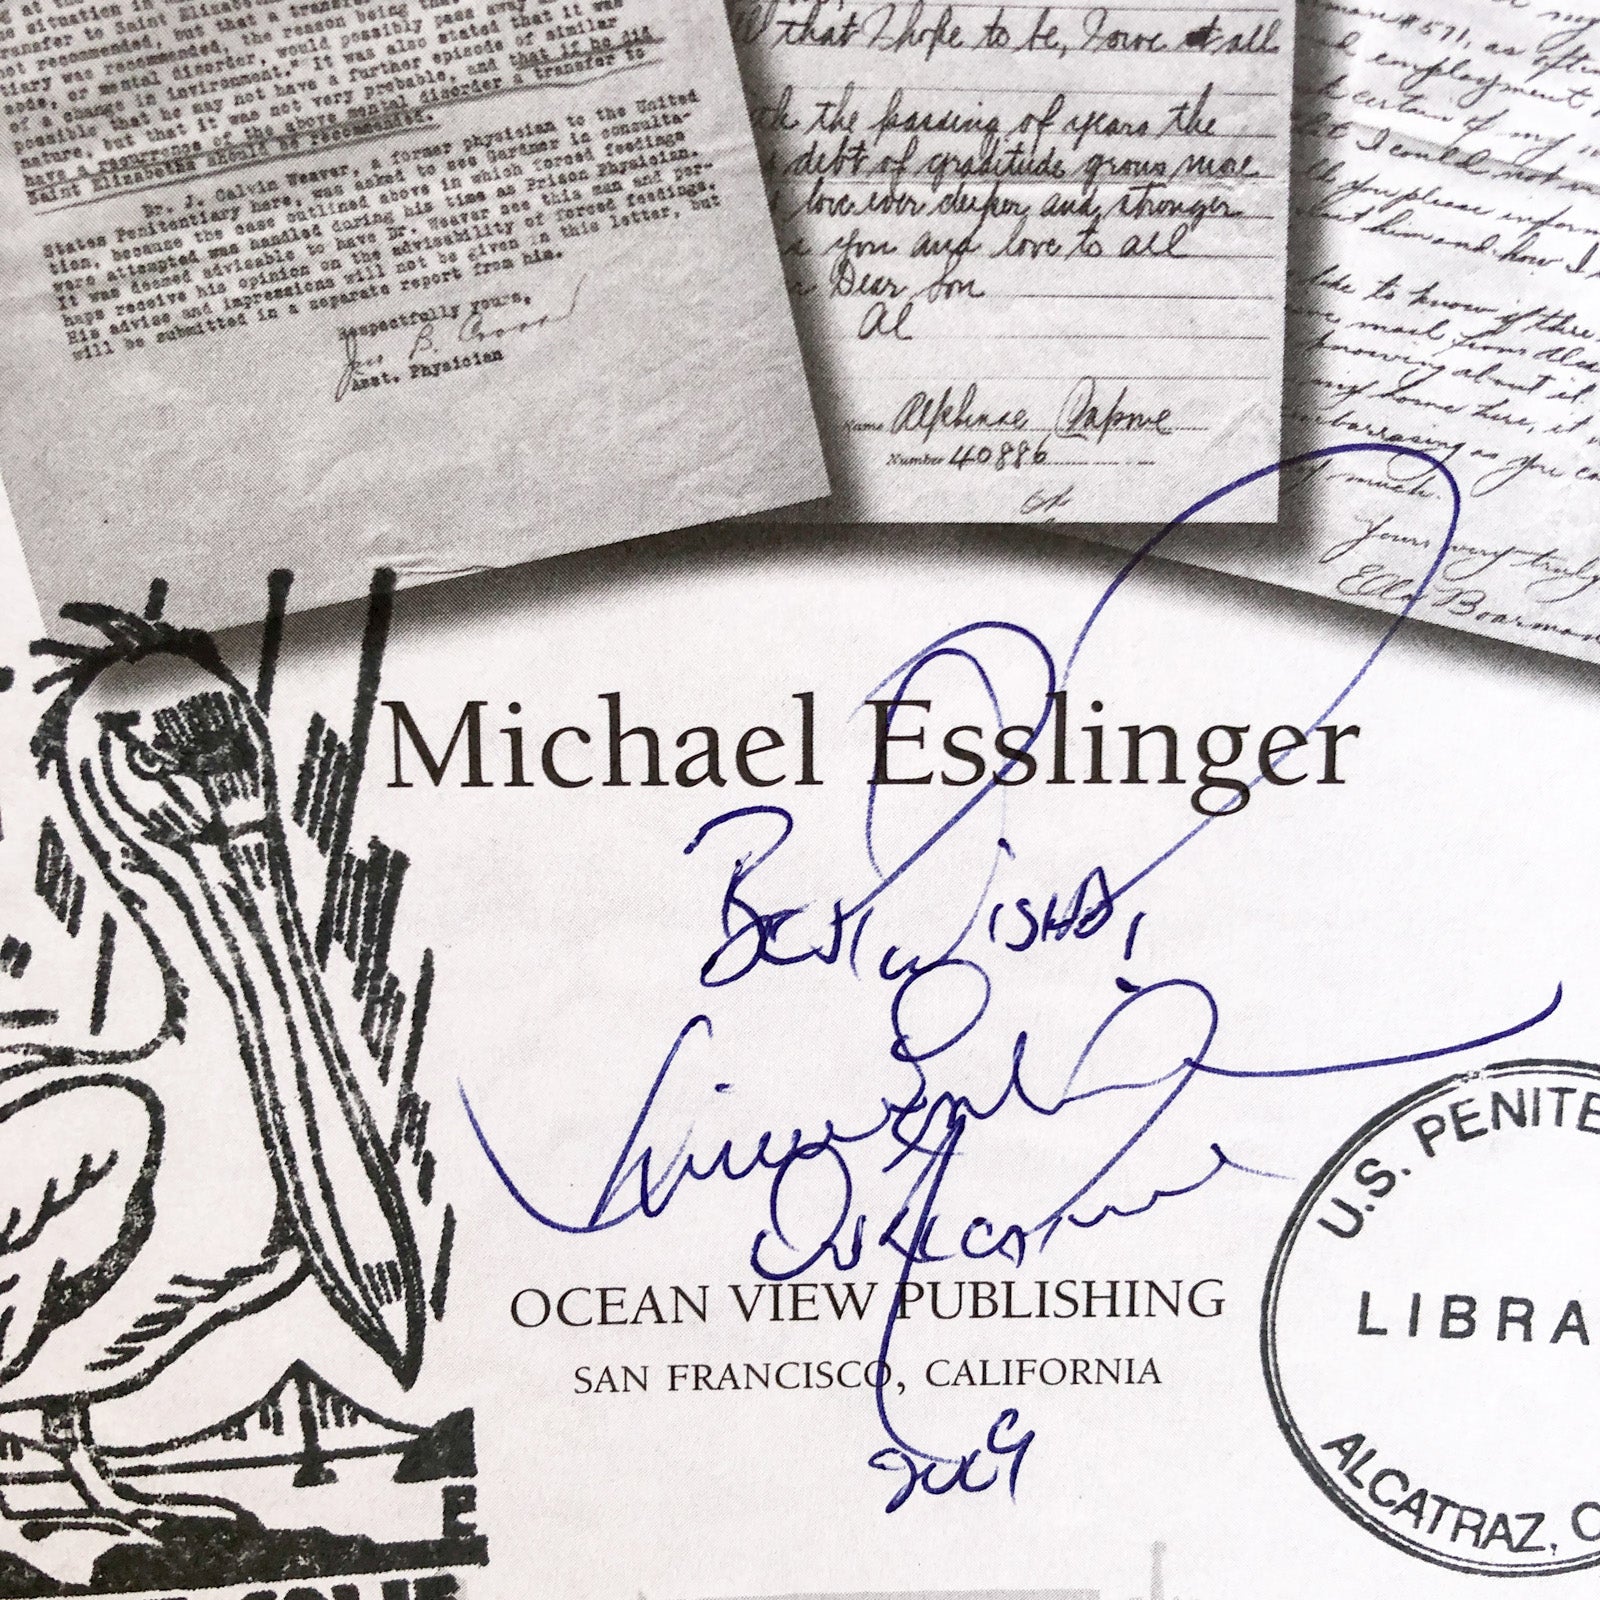 ransfer to Saint Elizabeth
not recommended, but that a transfer
tiary was recommended, the reason being that
sode, or mental disorder, would possibly pass away
of a change in invironment." It was also stated that it was
possible that he may not have a further episode of similar
nature, but that it was not very probable, and that if he did
have a recurrence of the above mental disorder a transfer to
Saint Elizabeths should be recommended.
Dr. J. Calvin Weaver, a former physician to the United
States Penitentiary here, was asked to see Gardner in consulta-
tion, because the case outlined above in which forced feedings
were attempted was handled during his time as Prison Physician.
It was deemed advisable to have Dr. Weaver see this man and per-
haps receive his opinion on the advisability of forced feedings.
His advise and impressions will not be given in this letter, but
will be submitted in a separate report from him.
Respectfully yours,
Asst. Physician
that I hope to be, I owe it all
the passing of years the
debt of gratitude grows more
love ever deeper and stronger
you and love to all
Dear Son
Al
Name Alphonse Capone
Number 40886
#571, as often
employment
certain of my
I could not
you please inform
him and how I
like to know if there
mail from Alca
knowing about it
my home here, it
barrasing as you ca
much.
Yours very truly
Ella Boarman
Michael Esslinger
Best Wishes,
OCEAN VIEW PUBLISHING
SAN FRANCISCO, CALIFORNIA
2009
U.S. PENITE
LIBRA
ALCATRAZ, C